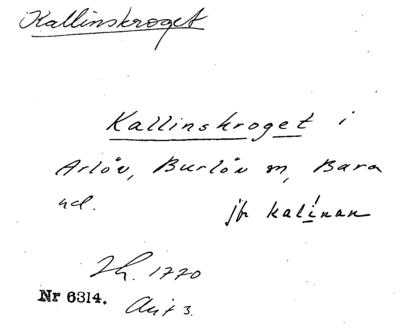 Kallinskroget
Kallinskroget i
Arlöv, Burlöv sn, Bara
hd.
jfr kalinan
Lh. 1770
Nr 6314.
Akt 3.